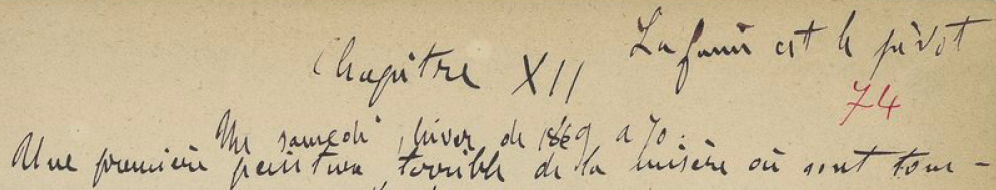 La faim est le pivot
Chapitre XII
74
Un samedi, hiver de 1869 a 70.
Une première peinture terrible de la misère où sont tom-